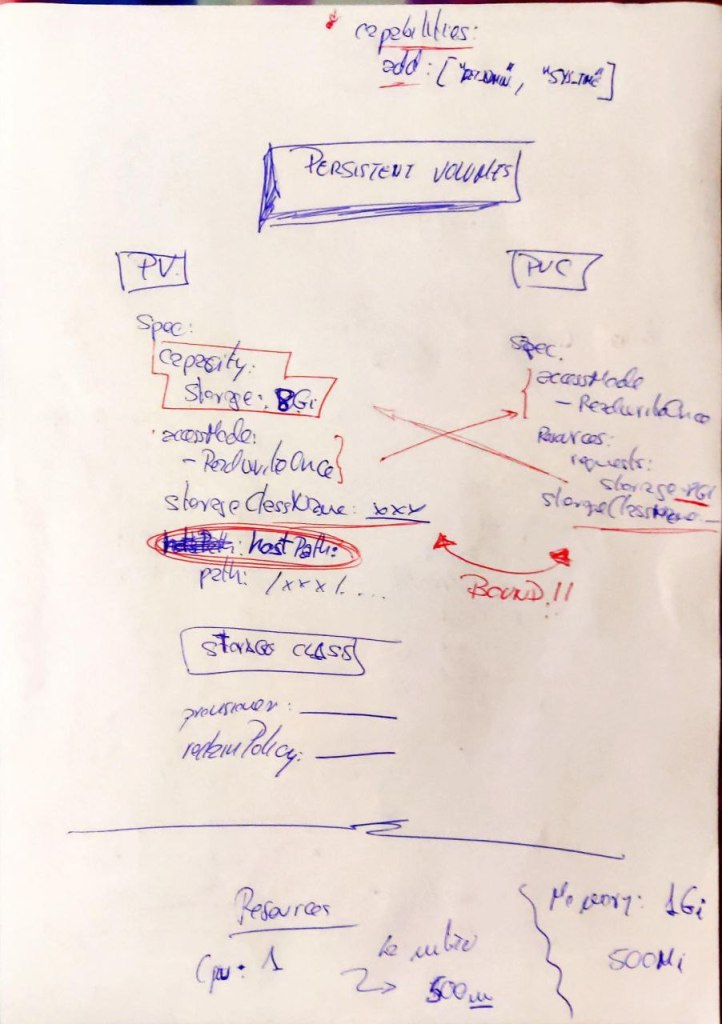 capabilities:
add: ["NET_ADMIN", "SYS_TIME"]
PERSISTENT VOLUMES
PV
spec:
capacity:
storage: 8Gi
accessMode:
- ReadWriteOnce
storageClassName: xxx
hostPath:
path: /xxx/....
PVC
spec:
accessMode
- ReadWriteOnce
Resources:
requests:
storage:
storageClassName
BOUND!!
STORAGE CLASS
provisioner:
reclaimPolicy:
Resources
Cpu: 1
500m
Memory: 1Gi
500Mi